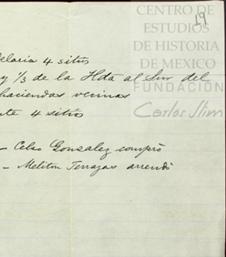 CENTRO DE
ESTUDIOS
DE HISTORIA
DE MEXICO
FUNDACIÓN
Carlos Slim
19
4 sitios
y 1/3 de la Hda al Sur del
haciendas vecinas
4 sitios
- Celso Gonzalez compró
- Meliton Terrazas arrendó